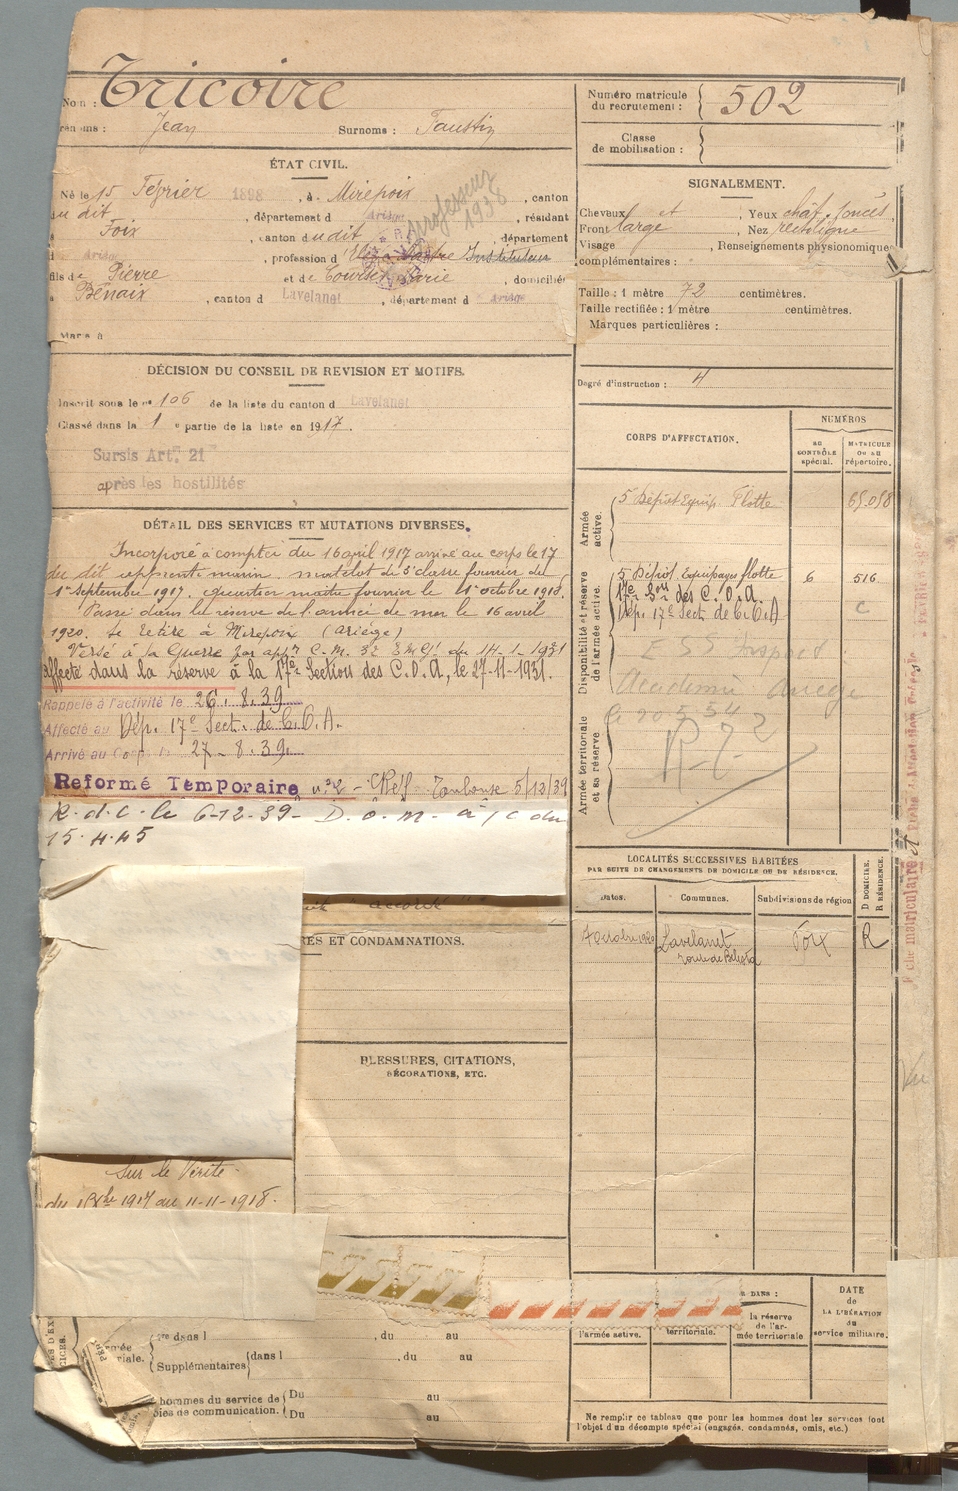 Nom : Tricoire
Jean Surnoms : Faustin
Numéro matricule
du recrutement : 502
Classe
de mobilisation :
ÉTAT CIVIL.
Né le 15 Février 1898, à Mirepoix, canton
du dit, département d Ariège, résidant
Foix, canton du dit, département
d Ariège, profession d Instituteur
professeur
1938
fils de Pierre et de Marie, domiciliés
à Bénaix, canton d Lavelanet, département d Ariège
Marié à
SIGNALEMENT.
Cheveux et, Yeux chât. foncés,
Front large, Nez rectiligne
Visage, Renseignements physionomiques
complémentaires :
Taille : 1 mètre 72 centimètres.
Taille rectifiée : 1 mètre centimètres.
Marques particulières :
Degré d'instruction : 4
DÉCISION DU CONSEIL DE REVISION ET MOTIFS.
Inscrit sous le n° 106 de la liste du canton d Lavelanet
Classé dans la 1e partie de la liste en 1917.
Sursis Art. 21
après les hostilités
DÉTAIL DES SERVICES ET MUTATIONS DIVERSES.
Incorporé à compter du 16 avril 1917 arrivé au corps le 17
du dit apprenti marin, matelot de 3e classe fourrier du
1er septembre 1917. quartier maître fourrier le 1er octobre 1918.
Passé dans la réserve de l'armée de mer le 16 avril
1920. Se retire à Mirepoix (Ariège)
Versé à la Guerre par C.M. 32 E.M.G. du 14-1-1931
Affecté dans la réserve à la 17e Section des C.O.A, le 27-11-1931.
Rappelé à l'activité le 26.8.39
Affecté au Dép. 17e Sect. de C.O.A.
Arrivé au Corps le 27-8.39.
Réformé Temporaire n°2 - CRef Toulouse 5/12/39
R.d.C. le 6-12-39 - D.o.m. à/c du
15.4.45
accord
RES ET CONDAMNATIONS.
BLESSURES, CITATIONS,
DÉCORATIONS, ETC.
Sur le Vérité.
1917 au 11-11-1918.
CORPS D'AFFECTATION.
NUMÉROS
AU
CONTRÔLE
spécial.
MATRICULE
OU AU
répertoire.
Armée
active.
5e Dépôt Equip. Flotte 65.058
Disponibilité et réserve
de l'armée active.
5e Dépôt Equipages flotte 6 516
17e Son des C.O.A.
Dép. 17e Sect de C.O.A C
ESS Inspect
Académie Ariège
20 5 54
Armée territoriale
et sa réserve
LOCALITÉS SUCCESSIVES HABITÉES
PAR SUITE DE CHANGEMENTS DE DOMICILE OU DE RÉSIDENCE.
Dates.
Communes.
Subdivisions de région
D DOMICILE.
R RÉSIDENCE.
Lavelanet Foix R
route de Bélesta
DANS :
l'armée active.
territoriale.
la réserve
de l'ar-
mée territoriale
DATE
de
LA LIBÉRATION
du
service militaire.
dans l, du au
Supplémentaires dans l, du au
hommes du service de Du au
voies de communication. Du au
Ne remplir ce tableau que pour les hommes dont les services font
l'objet d'un décompte spécial (engagés, condamnés, omis, etc.)
Vu